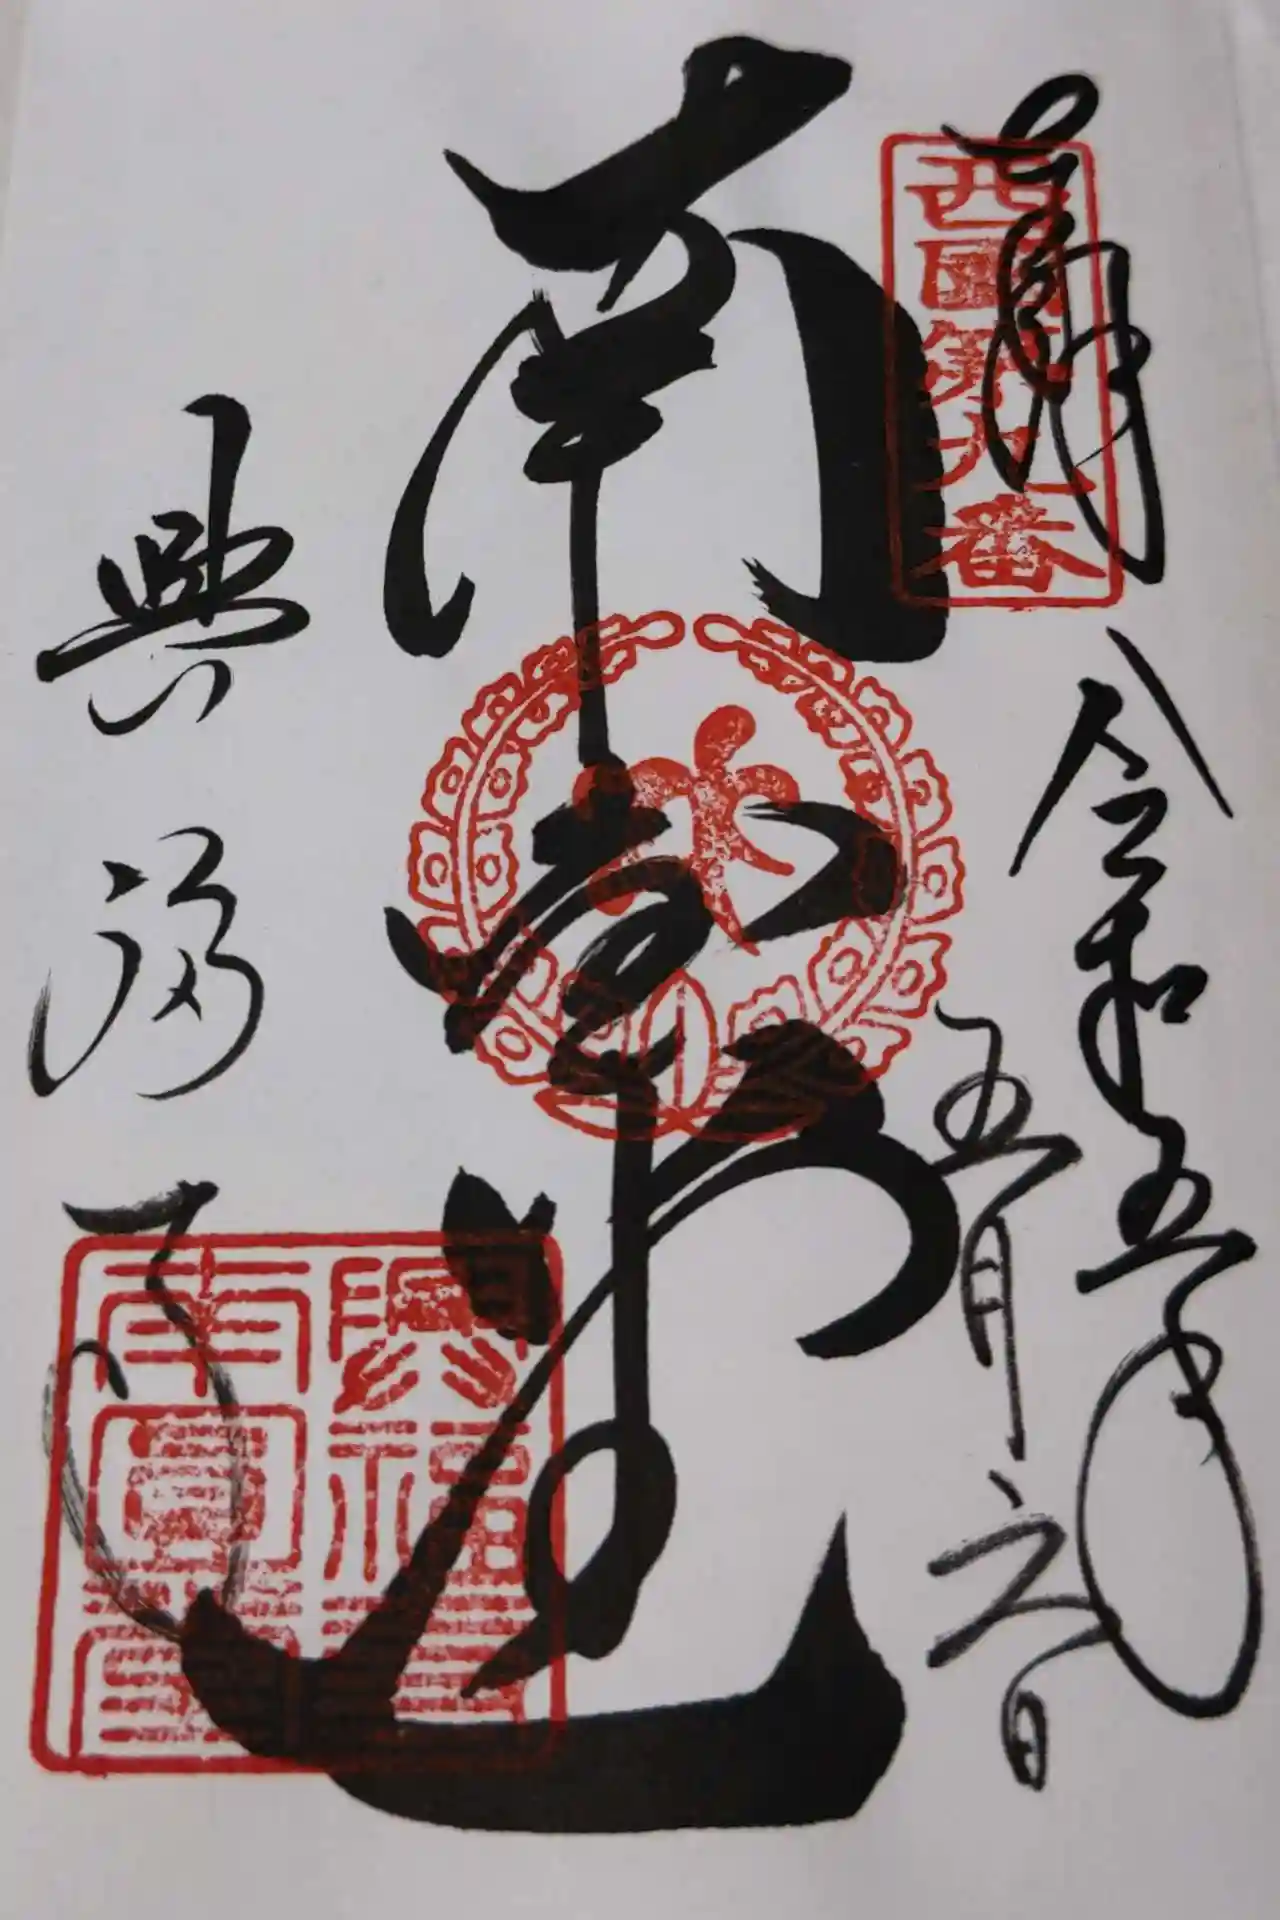 奉拝
西國第九番
令和五年
五月六日
南
興福寺
興福寺
南圓堂